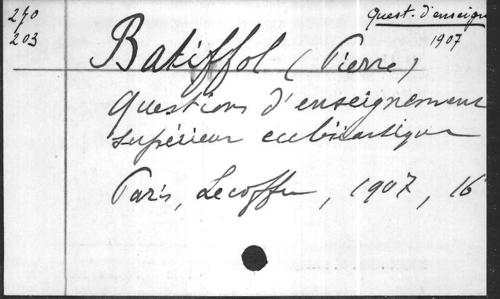 270
203
Quest. d'enseign
1907
Batiffol (Pierre)
Questions d'enseignement
supérieur ecclésiastique
Paris, Lecoffre, 1907, 16